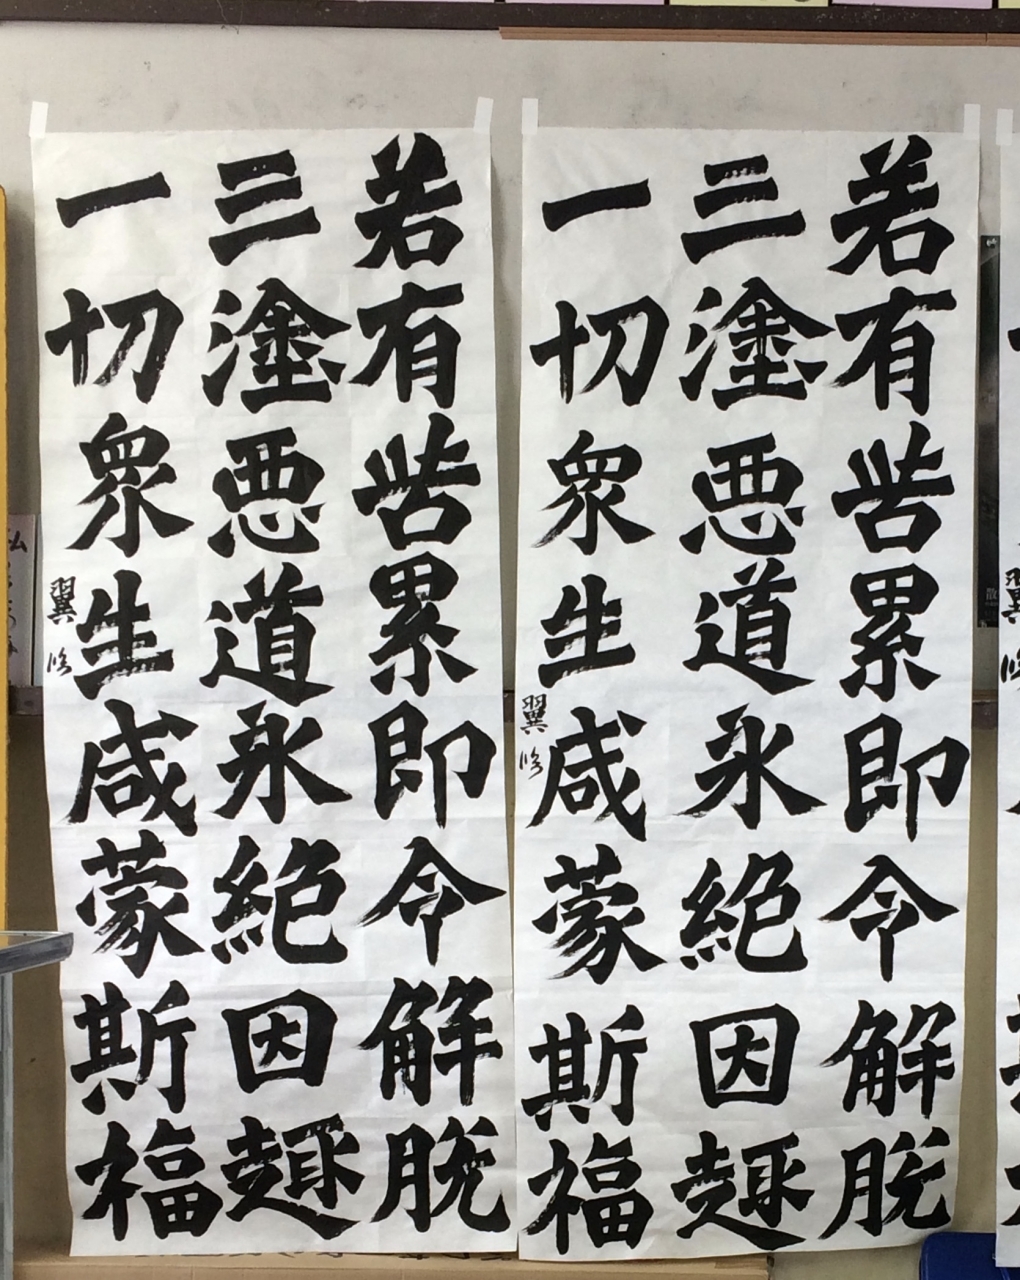 若有苦累即令解脱
三塗悪道永絶因趣
一切衆生咸蒙斯福
翼臨
若有苦累即令解脱
三塗悪道永絶因趣
一切衆生咸蒙斯福
翼臨
翼臨